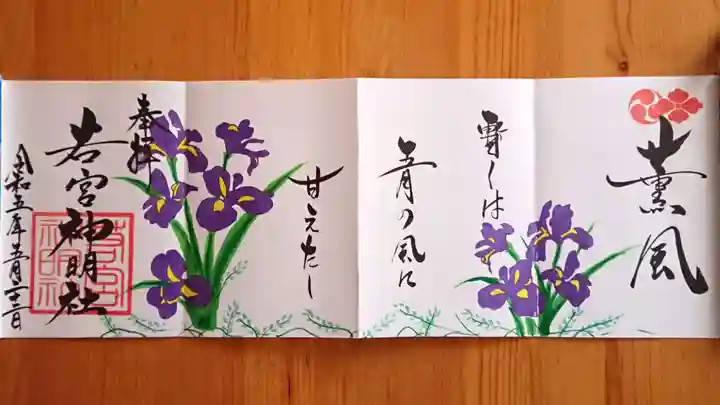 薫風
暫しは
五月の風に
甘えたし
奉拝
若宮神明社
令和五年五月二十二日
若宮神明社